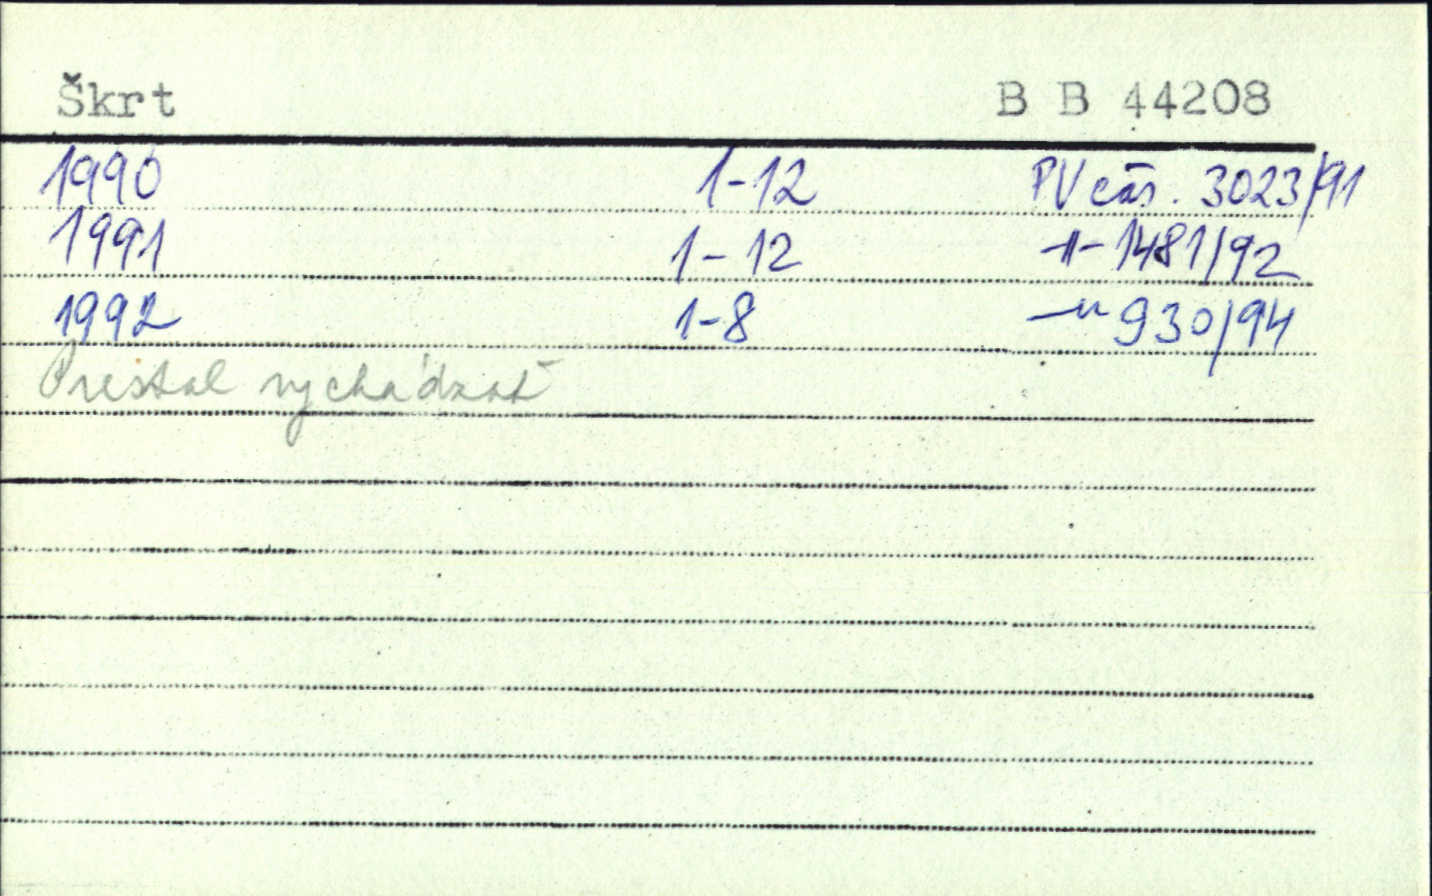 Škrt B B 44208
1990 1-12 PV čas. 3023/91
1991 1-12 -"- 1481/92
1992 1-8 -"- 930/94
Prestal vychádzať